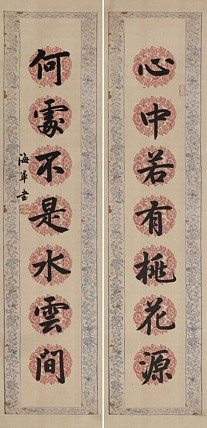 心中若有桃花源
何處不是水雲間
海軍書